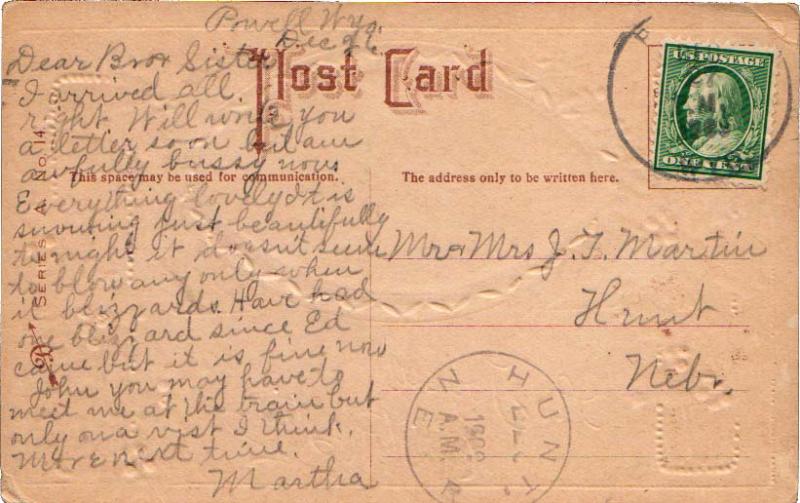 Powell Wyo.
Dec 26
Dear Bro & Sister
I arrived all
right. Will write you
a letter soon but am
awfully bussy now
Everything lovely It is
snowing just beautifully
to night it doesn't seem
to blow any only when
it blizzards. Have had
one blizzard since Ed
came but it is fine now
John you may have to
meet me at the train but
only on a visit I think.
More next time.
Martha
Post Card
This space may be used for communication.
The address only to be written here.
SERIES A. NO. 14
U.S. POSTAGE
ONE CENT
Mr & Mrs J. T. Martin
Hunt
Nebr.
HUNT
NE
1909
A.M.